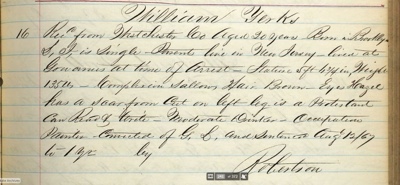 William Yerks
16 Rec'd from West Chester Co Aged 20 years Born Brooklyn
L. I. is Single - Parents live in New Jersey - lived at
at time of Arrest - Stature 5 ft 4 3/4 in Weight
135 lbs - Complexion Sallow Hair Brown - Eyes Hazel
has a scar from Cut on left leg is a Protestant
Can Read & Write - Moderate Drinker - Occupation
- Convicted of G. L. and Sentenced Aug 12/67
to 1 yr by
Robertson